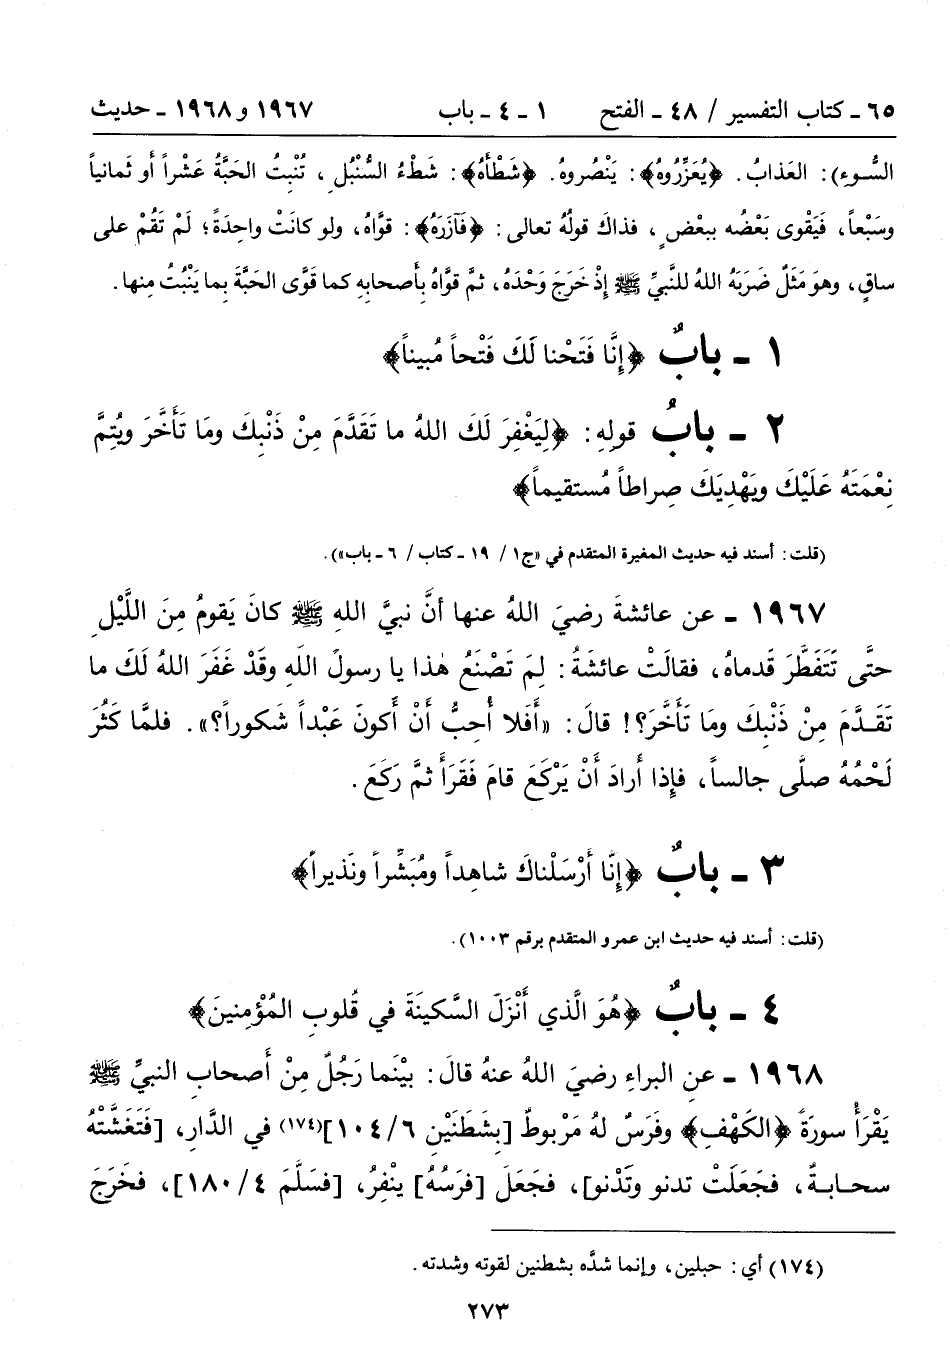 ٦٥ ـ كتاب التفسير / ٤٨ ـ الفتح ١ ـ ٤ ـ باب ١٩٦٧ و ١٩٦٨ ـ حديث
السُّوءِ): العَذابُ. ﴿يُعَزِّرُوهُ﴾: يَنْصُروهُ. ﴿شَطْأَهُ﴾: شَطْءُ السُّنْبُلِ، تُنْبِتُ الحَبَّةُ عَشْراً أو ثَمانياً
وسَبْعاً، فَيَقْوى بَعْضُه ببعْضٍ، فذاكَ قولُهُ تعالى: ﴿فَآزَرَهُ﴾: قوَّاهُ، ولو كانَتْ واحِدَةً؛ لَمْ تَقُمْ على
ساقٍ، وهوَ مَثَلٌ ضَرَبَهُ اللهُ للنَّبيِّ ﷺ إذْ خَرَجَ وَحْدَهُ، ثمَّ قوَّاهُ بِأصحابِهِ كما قَوَّى الحَبَّةَ بِما يَنْبُتُ مِنها.
١ ـ بابٌ ﴿إِنَّا فَتَحْنا لَكَ فَتْحاً مُبيناً﴾
٢ ـ بابُ قولِهِ: ﴿لِيَغْفِرَ لَكَ اللهُ ما تَقَدَّمَ مِنْ ذَنْبِكَ وما تَأَخَّرَ ويُتِمَّ
نِعْمَتَهُ عَلَيْكَ ويَهْدِيَكَ صِراطاً مُستقيماً﴾
(قلت: أسند فيه حديث المغيرة المتقدم في «ج١ / ١٩ ـ كتاب / ٦ ـ باب»).
١٩٦٧ ـ عن عائشةَ رضيَ اللهُ عنها أنَّ نبيَّ اللهِ ﷺ كانَ يَقومُ مِنَ اللَّيْلِ
حتَّى تَتَفَطَّرَ قَدماهُ، فقالَتْ عائشَةُ: لِمَ تَصْنَعُ هٰذا يا رسولَ اللهِ وقَدْ غَفَرَ اللهُ لَكَ ما
تَقَدَّمَ مِنْ ذَنْبِكَ وما تَأَخَّرَ؟! قالَ: «أَفَلا أُحِبُّ أَنْ أَكونَ عَبْداً شَكوراً؟». فلمَّا كَثُرَ
لَحْمُهُ صلَّى جالساً، فإذا أرادَ أَنْ يَرْكَعَ قامَ فَقَرَأَ ثمَّ رَكَعَ.
٣ ـ بابٌ ﴿إِنَّا أَرْسَلْناكَ شاهِداً ومُبَشِّراً ونَذيراً﴾
(قلت: أسند فيه حديث ابن عمرو المتقدم برقم ١٠٠٣).
٤ ـ بابٌ ﴿هُوَ الَّذي أَنْزَلَ السَّكينَةَ في قُلوبِ المُؤْمِنينَ﴾
١٩٦٨ ـ عنِ البراءِ رضيَ اللهُ عنهُ قالَ: بيْنَما رَجُلٌ مِنْ أصحابِ النبيِّ ﷺ
يَقْرَأُ سورَةَ ﴿الكَهْفِ﴾ وفَرَسٌ لهُ مَرْبوطٌ [بِشَطَنَيْنِ ٦/ ١٠٤](١٧٤) في الدَّارِ، [فَتَغَشَّتْهُ
سحابةٌ، فجَعَلَتْ تدنو وتَدْنو]، فجَعَلَ [فرَسُهُ] ينْفِرُ، [فسَلَّمَ ٤/ ١٨٠]، فخَرَجَ
(١٧٤) أي: حبلين، وإنما شدَّه بشطنين لقوته وشدته.
٢٧٣